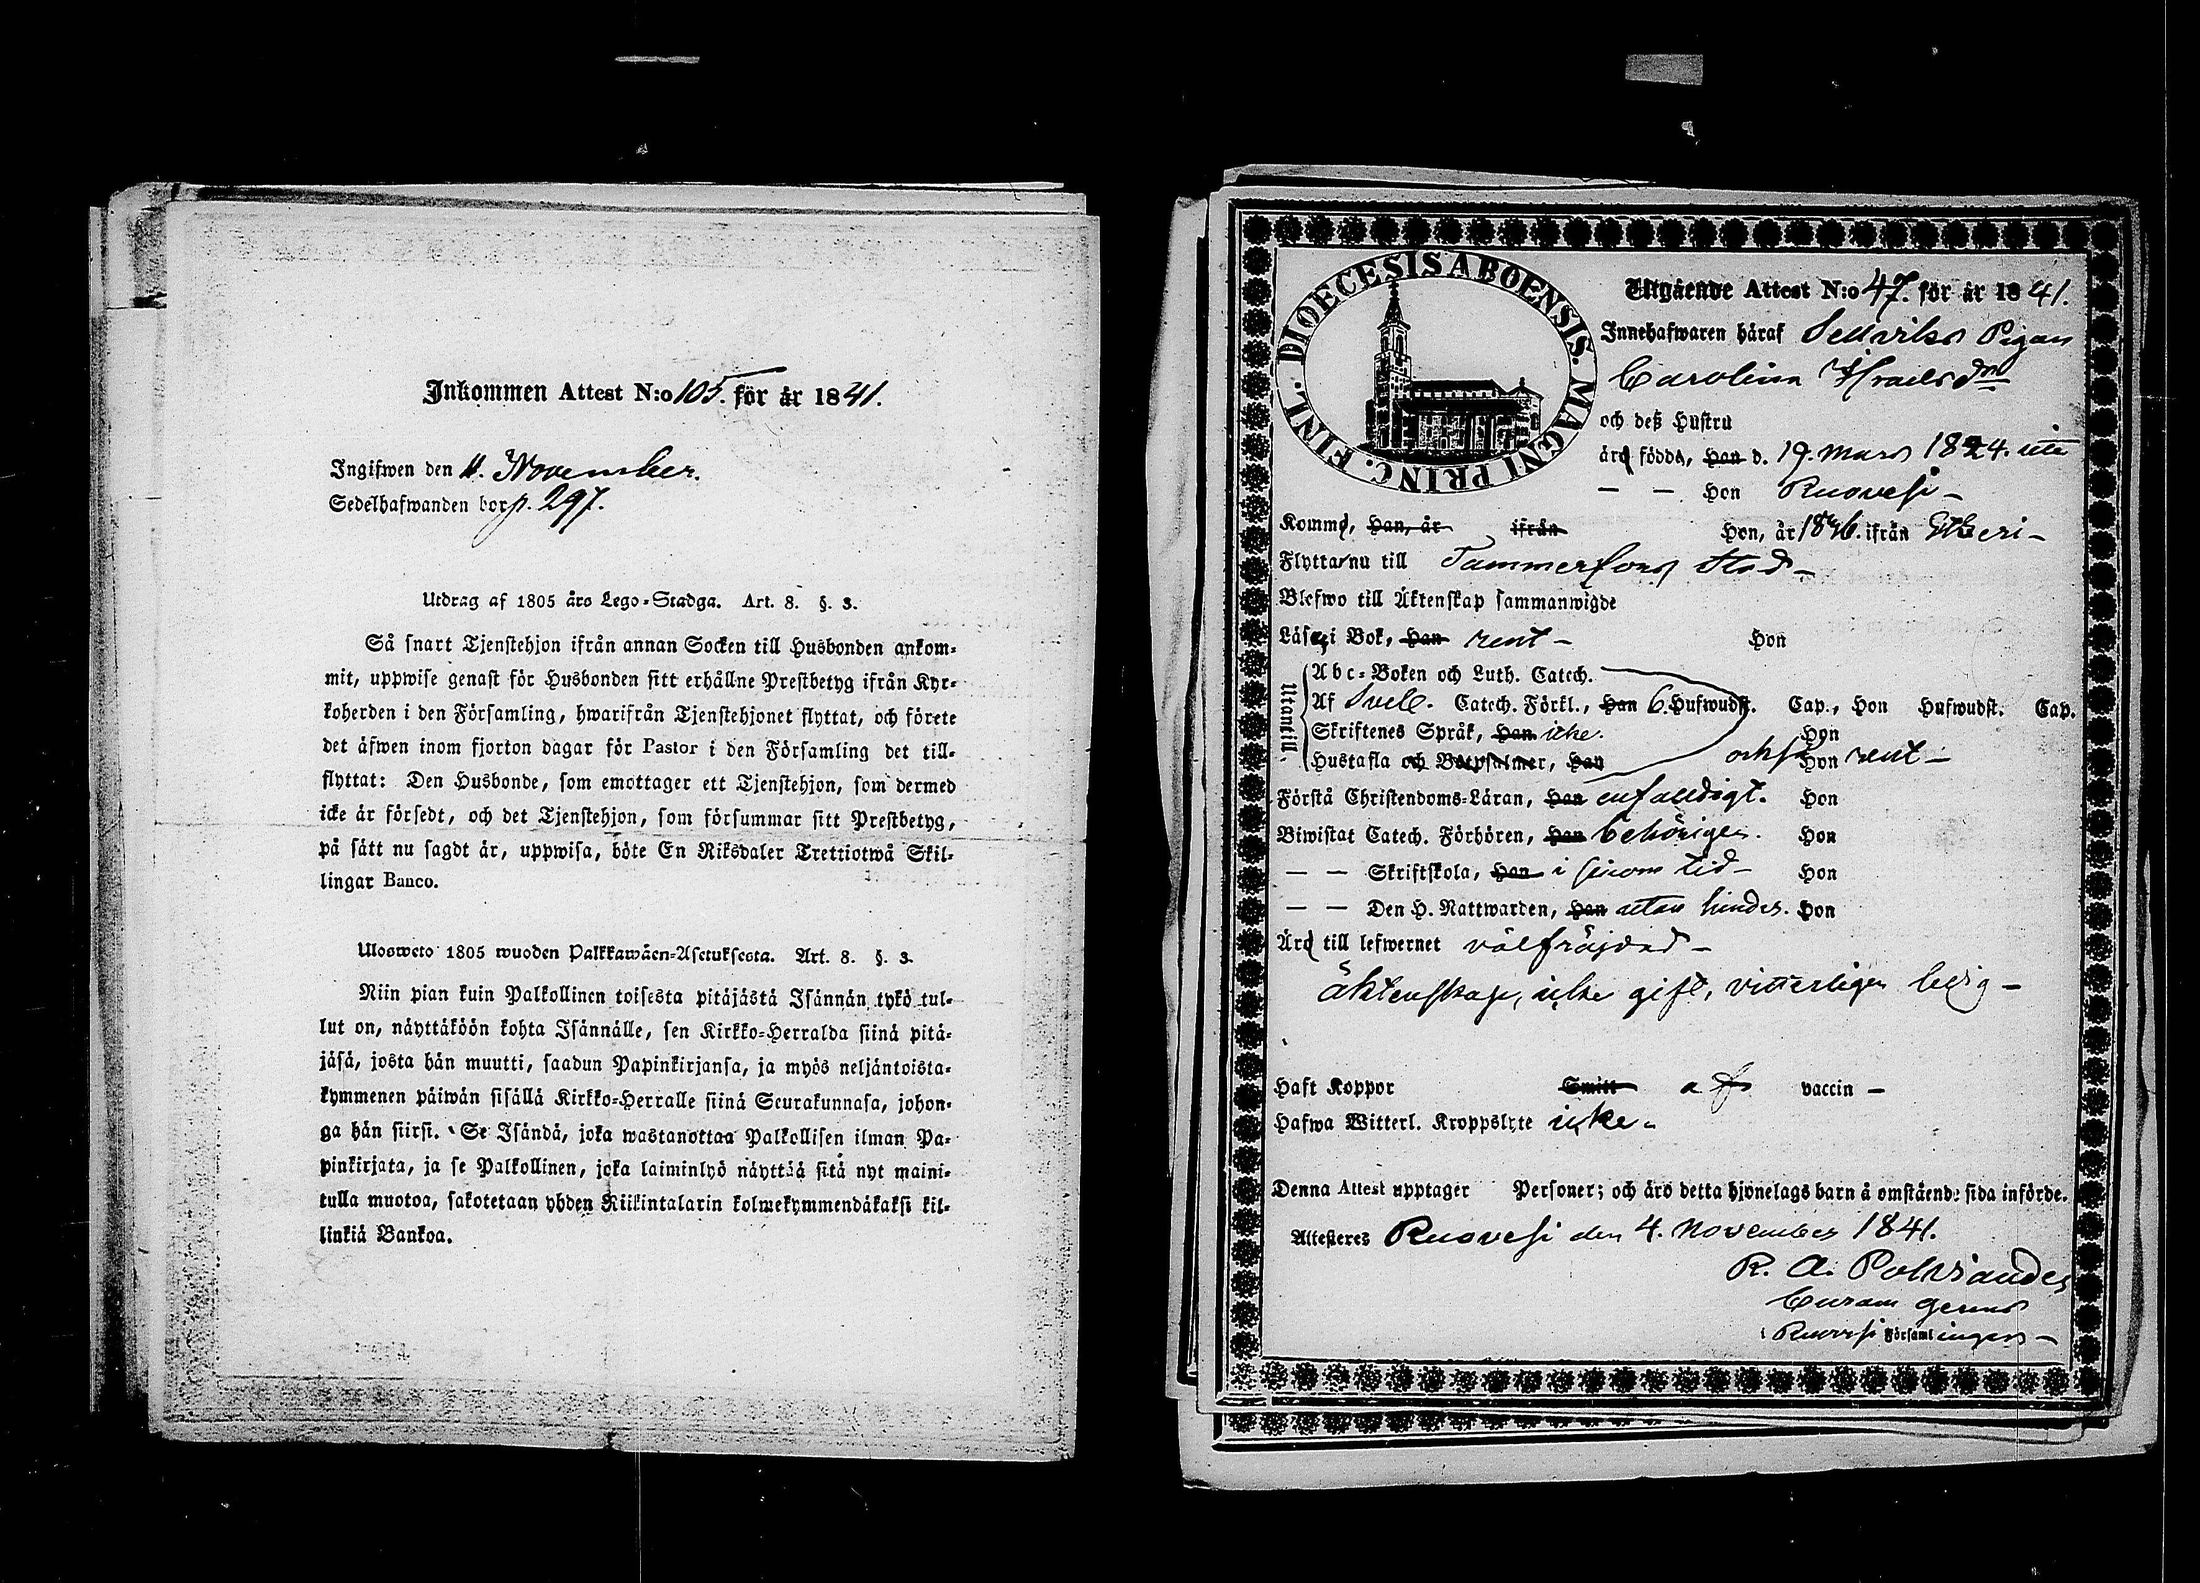 Inkommen Attest N:o 105. för år 1841.
Ingifwen den 11. November.
Sedelhafwanden bor p. 297.
Utdrag af 1805 års Lego-Stadga. Art. 8. §. 3.
Så snart Tjenstehjon ifrån annan Socken till Husbonden ankom-
mit, uppwise genast för Husbonden sitt erhållne Prestbetyg ifrån Kyr-
koherden i den Församling, hwarifrån Tjenstehjonet flyttat, och förete
det äfwen inom fjorton dagar för Pastor i den Församling det till-
flyttat: Den Husbonde, som emottager ett Tjenstehjon, som dermed
icke är försedt, och det Tjenstehjon, som försummar sitt Prestbetyg,
på sätt nu sagdt är, uppwisa, böte En Riksdaler Trettiotwå Skil-
lingar Banco.
Ulosweto 1805 wuoden Palkkawäen-Asetuksesta. Art. 8. §. 3.
Niin pian kuin Palkollinen toisesta pitäjästä Isännän tykö tul-
lut on, näyttäköön kohta Isännälle, sen Kirkko-Herralda siinä pitä-
jäsä, josta hän muutti, saadun Papinkirjansa, ja myös neljäntoista-
kymmenen päiwän sisällä Kirkko-Herralle siinä Seurakunnasa, johon-
ga hän siirsi. Se Isändä, joka wastanottaa Palkollisen ilman Pa-
pinkirjata, ja se Palkollinen, joka laiminlyö näyttää sitä nyt maini-
tulla muotoa, sakotetaan yhden Riikintalarin kolmekymmendäkaksi kil-
linkiä Bankoa.
DIOECESIS ABOENSIS. MAGNI PRINC. FINL.
Utgående Attest N:o 47. för år 1841.
Innehafwaren häraf Pigan
Carolina Israelsdr
och deß Hustru
äro födda, Han d. 19. Mars 1824. uti
— — Hon Ruovesi —
Komme, Han, år ifrån Hon, år 1836. ifrån Etseri —
Flytta nu till Tammerfors Stad —
Blefwo till Äktenskap sammanwigde
Läsa i Bok, Han rent — Hon
Utantill
Abc-Boken och Luth. Catech.
Af Sveb. Catech. Förkl., Han 6. Hufwudst. Cap., Hon Hufwudst. Cap.
Skriftenes Språk, Han icke. Hon
Hustafla och Botpsalmer, Han också Hon rent —
Förstå Christendoms-Läran, Han enfalldigt. Hon
Biwistat Catech. Förhören, Han behörigen. Hon
— — Skriftskola, Han i sinom tid — Hon
— — Den H. Nattwarden, Han utan hinder. Hon
Äro till lefwernet välfräjdad —
äktenskap, icke gift, vitterligen ledig —
Haft Koppor Smitt af vaccin —
Hafwa Witterl. Kroppslyte icke.
Denna Attest upptager Personer; och äro detta hjonelags barn å omstående sida införde.
Attesteres Ruovesi den 4. November 1841.
R. A. Polviander
Curam gerens
i Ruovesi Församlingen —